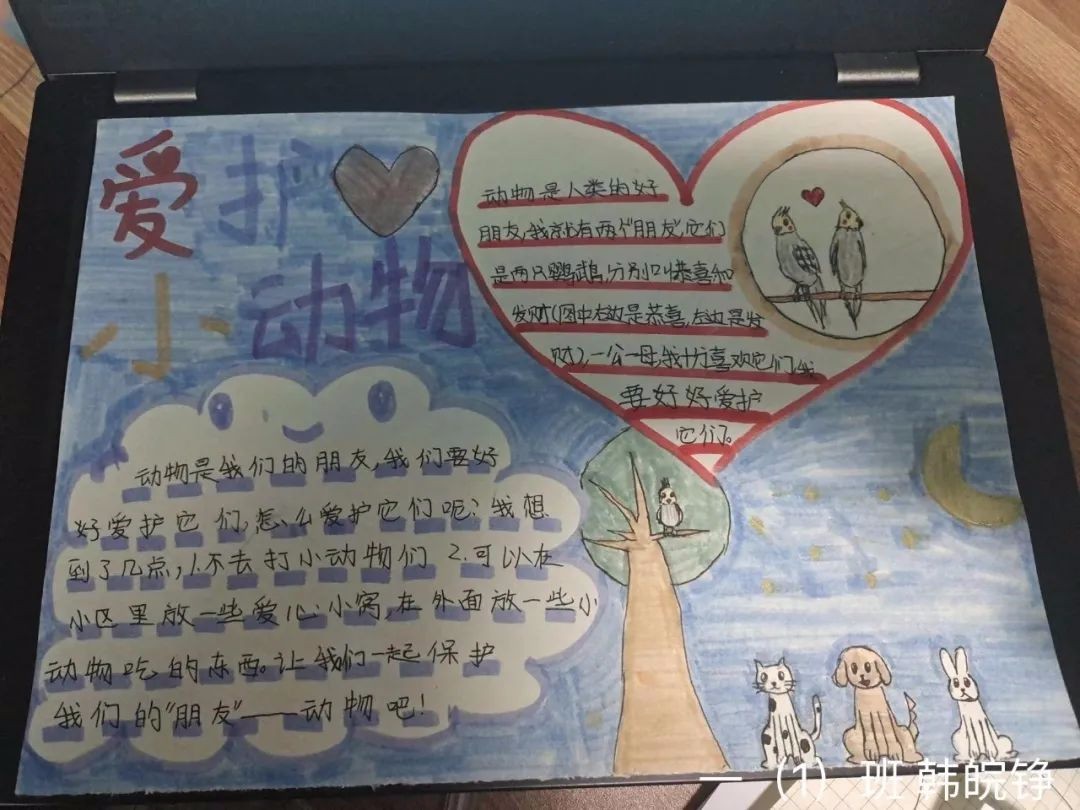 爱护
小动物
动物是人类的好
朋友,我就有两个"朋友",它们
是两只鹦鹉,分别叫恭喜和
发财(图中右边是恭喜,左边是发
财),一公一母,我十分喜欢它们,我
要好好爱护
它们。
动物是我们的朋友,我们要好
好爱护它们,怎么爱护它们呢?我想
到了几点,1.不去打小动物们 2.可以在
小区里放一些爱心小窝,在外面放一些小
动物吃的东西。让我们一起保护
我们的"朋友"——动物吧!
一(1)班 韩皖铮